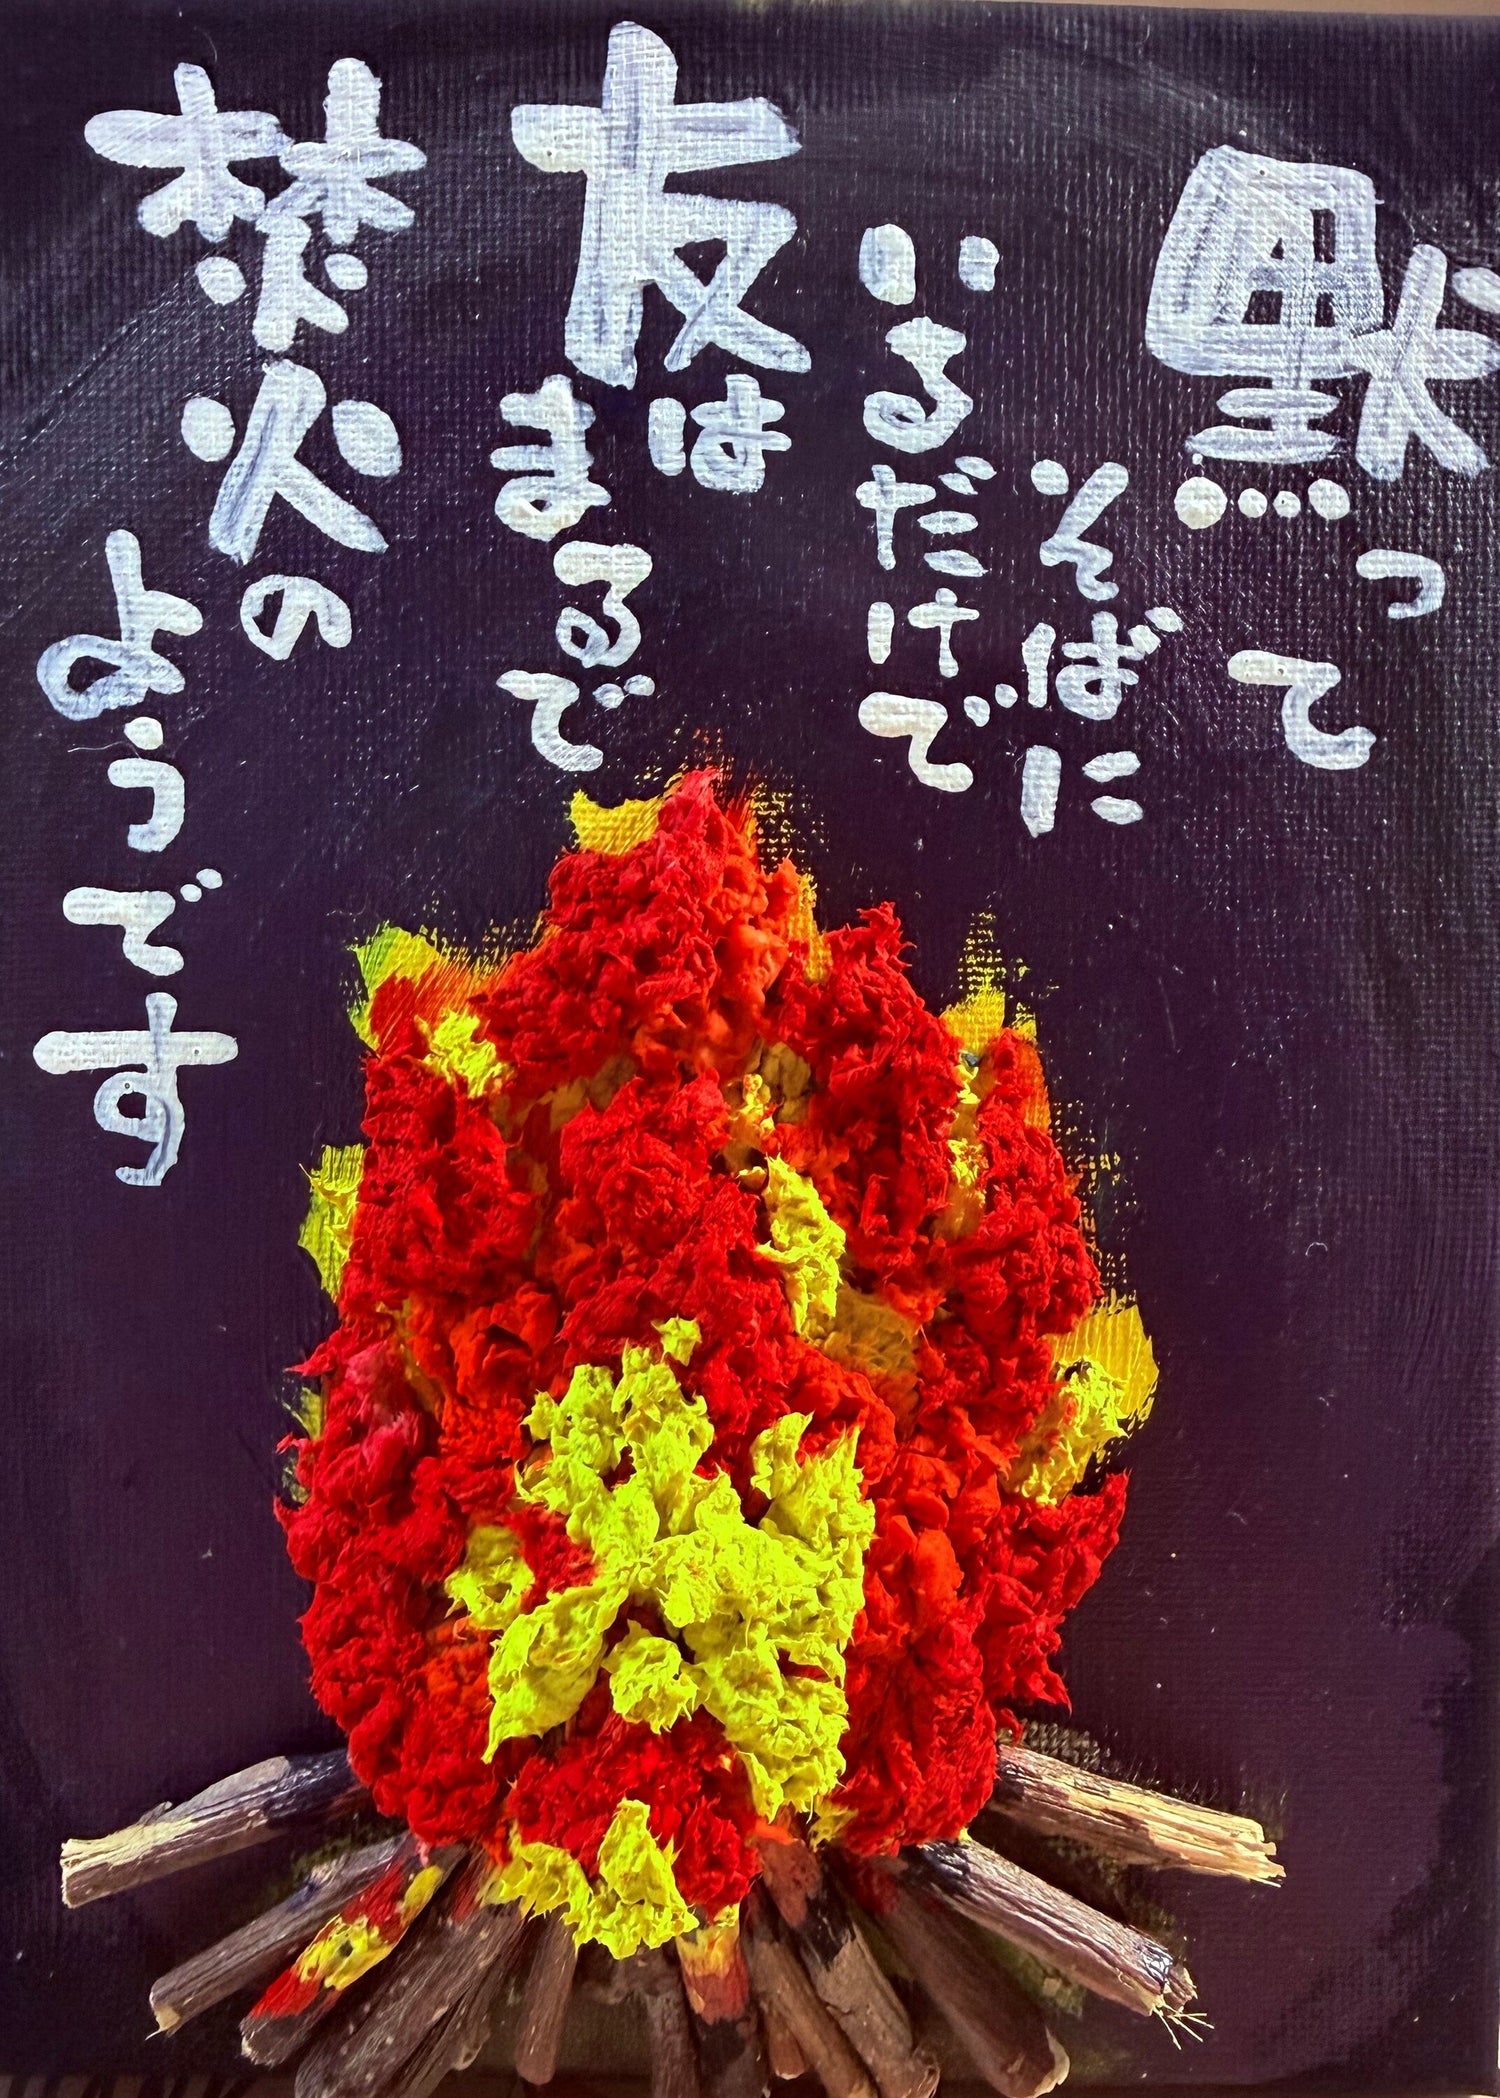 黙って
そばに
いるだけで
友は
まるで
焚火の
ようです